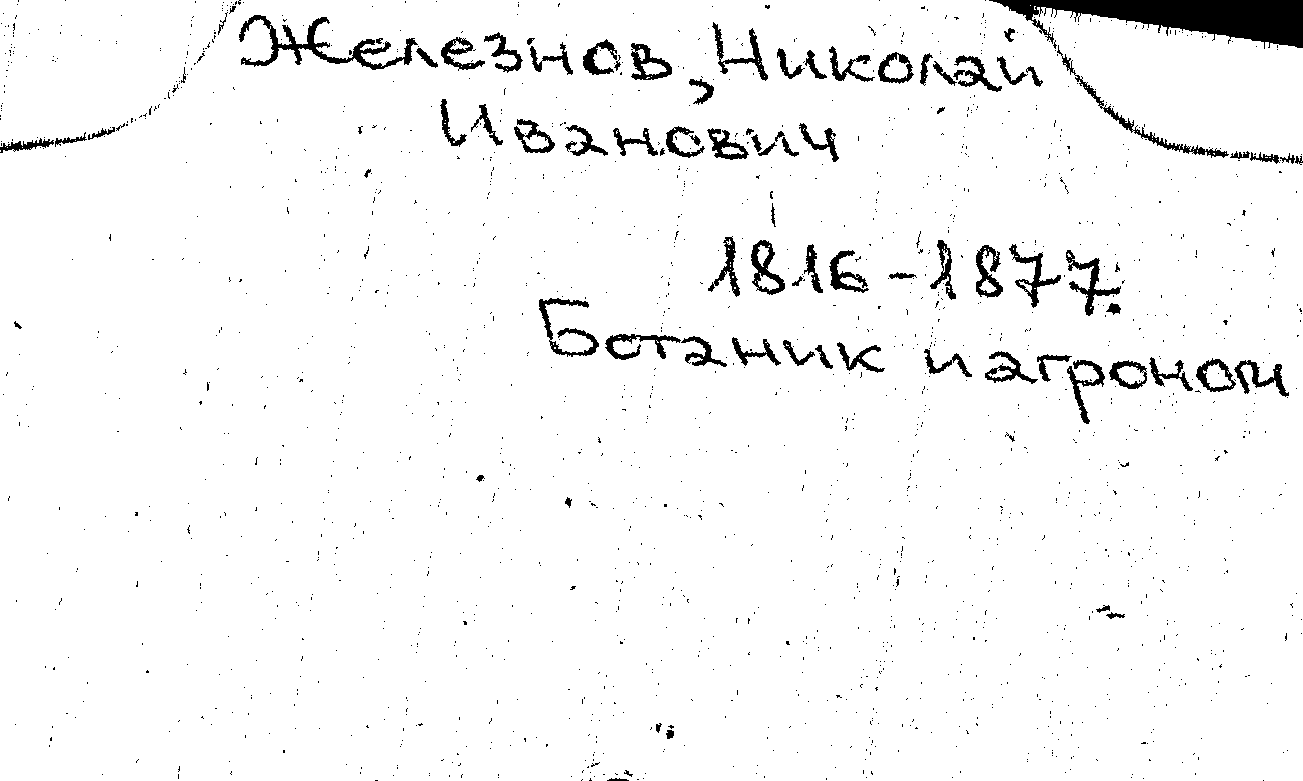 Железнов, Николай
Иванович
1816-1877.
Ботаник и агроном